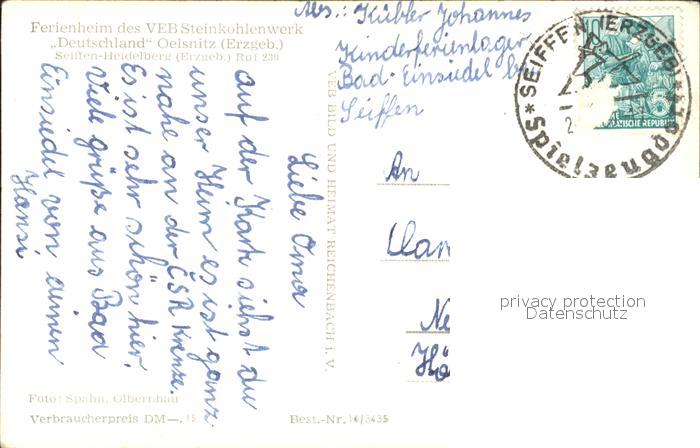 Ferienheim des VEB Steinkohlenwerk
„Deutschland" Oelsnitz (Erzgeb.)
Seiffen-Heidelberg (Erzgeb.) Ruf 239
Abs.: Kübler Johannes
Kinderferienlager
Bad-Einsiedel b.
Seiffen
SEIFFEN (ERZGEB)
Spielzeugdo
10
DEMOKRATISCHE REPUBLIK
Liebe Oma
auf der Karte siehst du
unser Heim es ist ganz
nahe an der ČSR Krenze.
Es ist sehr schön hier.
Viele grüße aus Bad
Einsiedel von deinen
Hansi
VEB BILD UND HEIMAT REICHENBACH i. V.
An
privacy protection
Datenschutz
Foto: Spahn, Olbernhau
Verbraucherpreis DM—,15
Best.-Nr. 14/3435